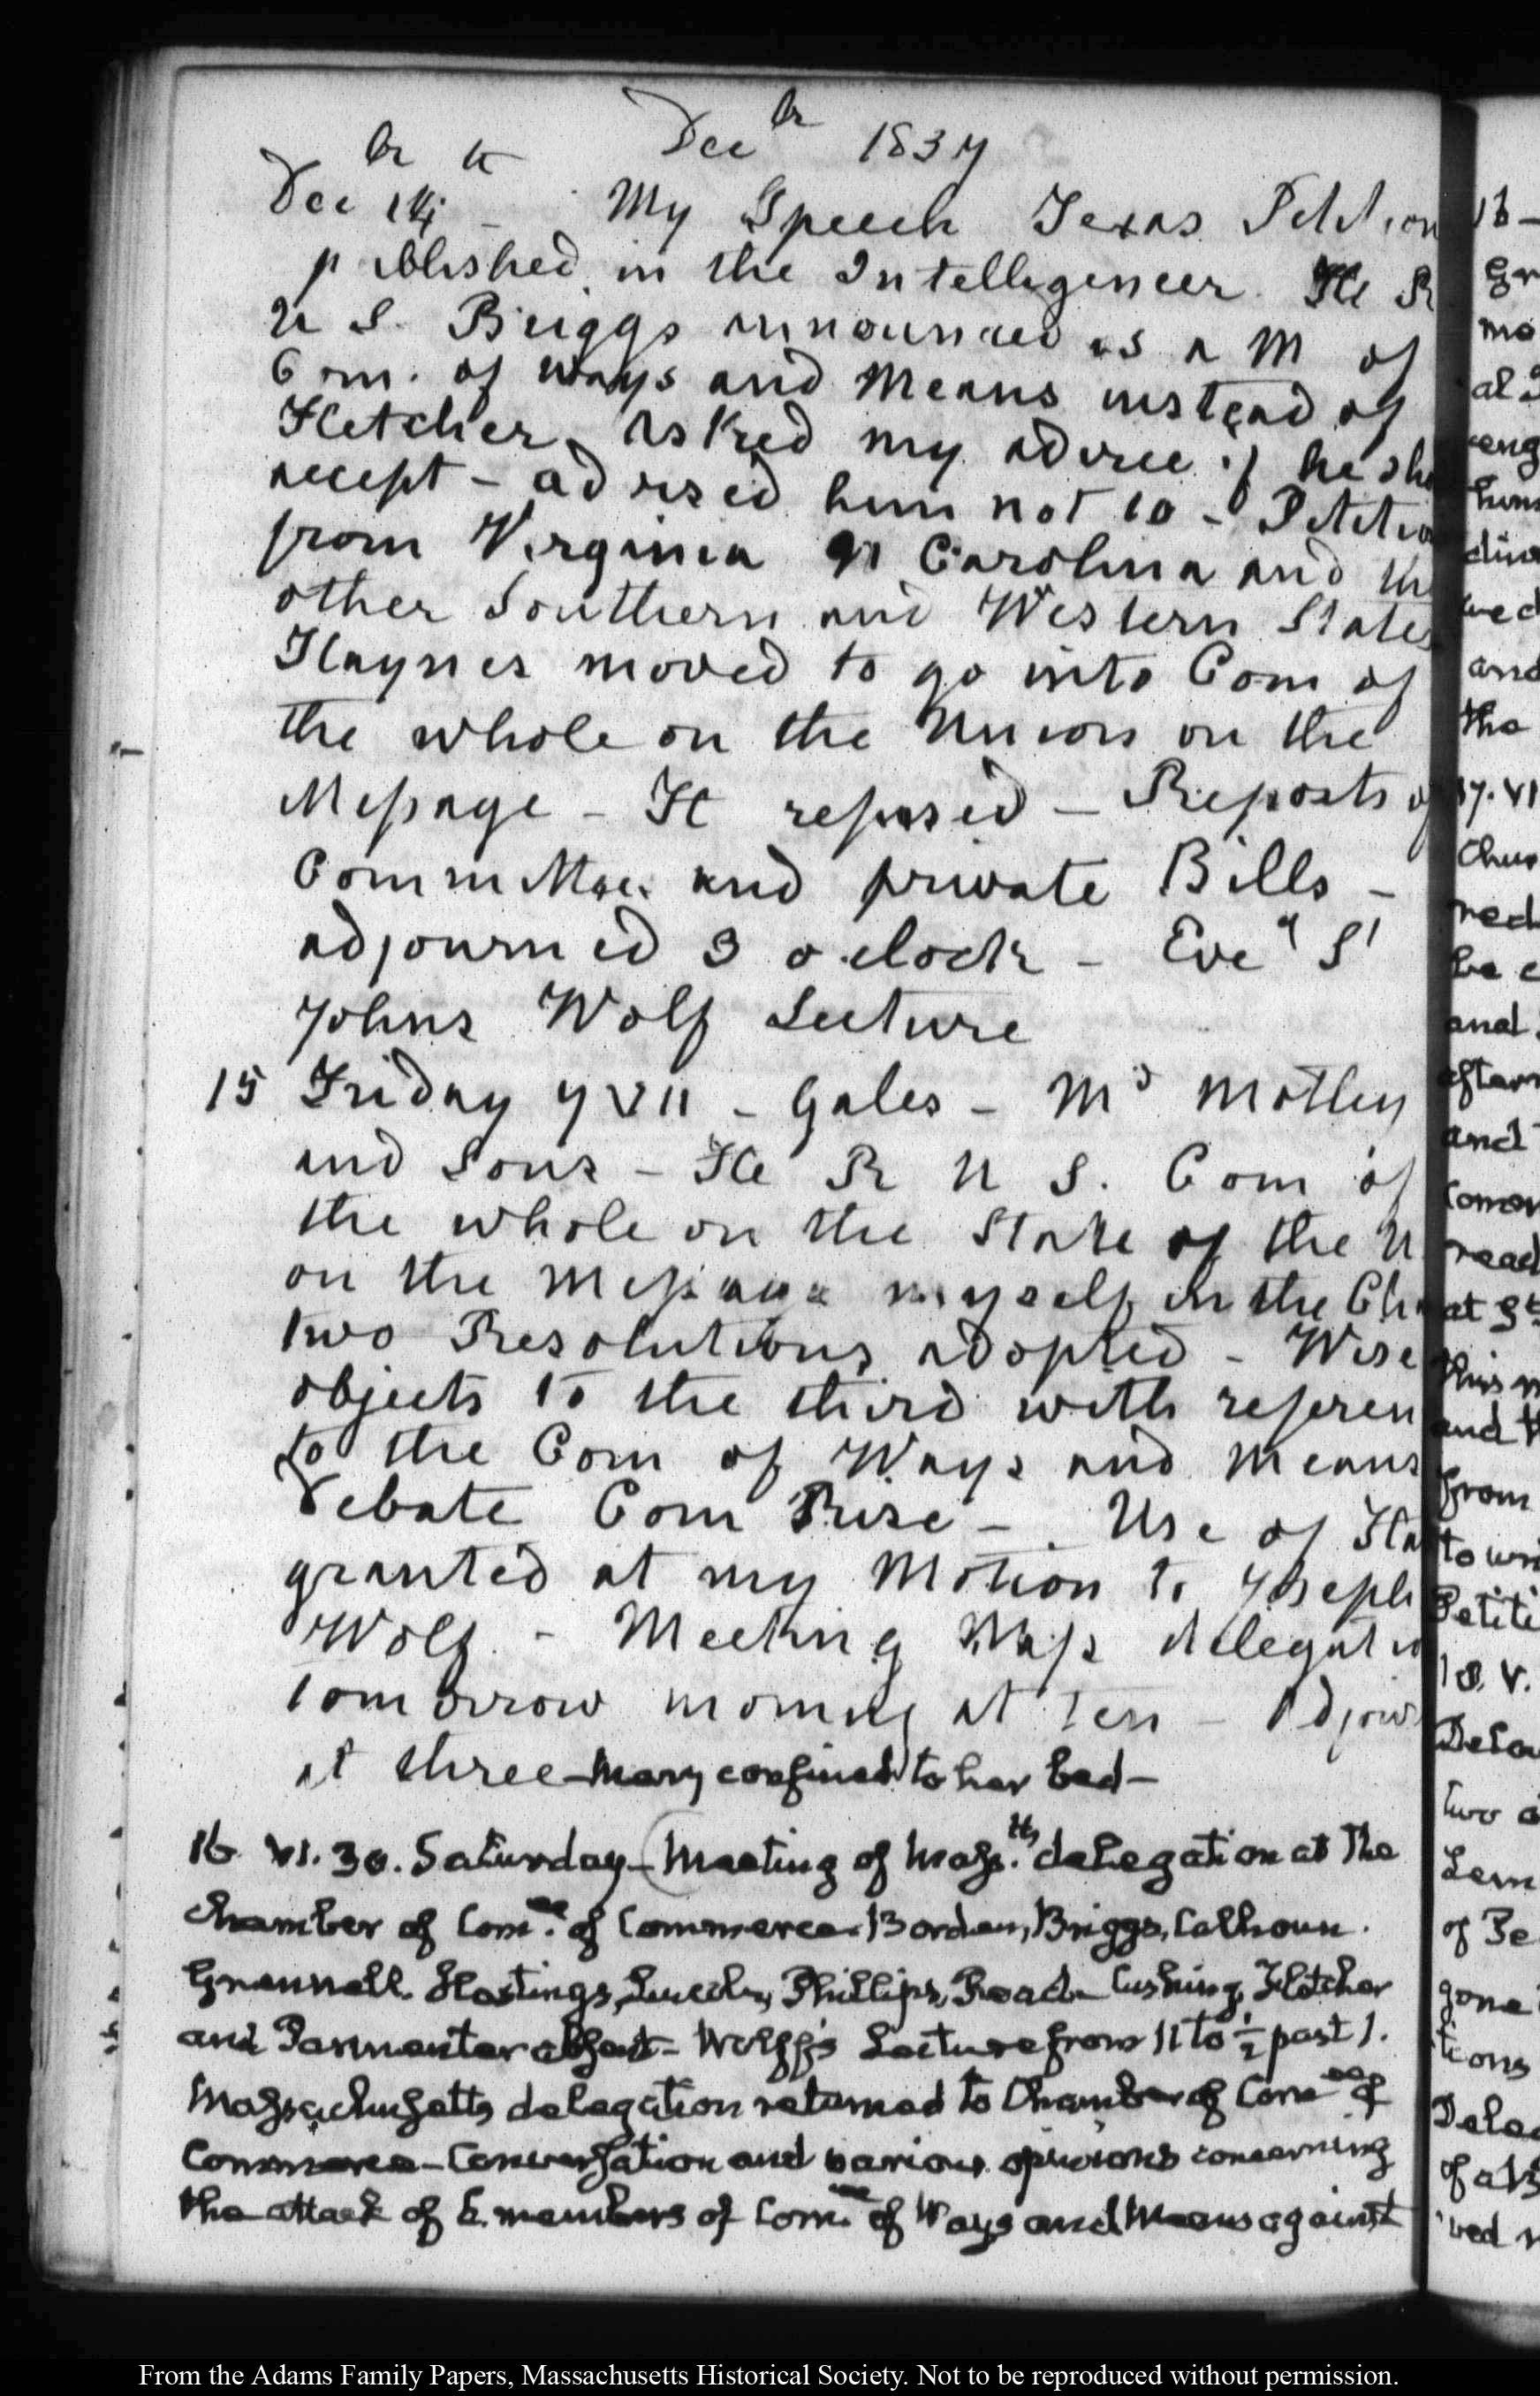 Decbr 1837
Decbr 14th - My Speech Texas Petition
published in the Intelligencer. He R
U S. Briggs announced as a M of
Com. of Ways and Means instead of
Fletcher, asked my advice if he sho
accept - advised him not to - Petitio
from Virginia N Carolina and the
other Southern and Western States
Haynes moved to go into Com of
the whole on the Union on the
Message - It refused - Reports of
Committee and private Bills -
adjourned 3 o.clock - Eveg St
Johns Wolf Lecture
15 Friday VII - Gales - Mr Motley
and Sons - He R U S. Com of
the whole on the State of the U
on the Message myself in the Ch
two Resolutions adopted - Wise
objects to the third with referen
to the Com of Ways and Means
Debate Com Rise - Use of Ha
granted at my Motion to Joseph
Wolf. - Meeting Mass delegatio
tomorrow morning at ten - Adjour
at three - Mary confined to her bed -
16. VI. 30. Saturday - Meeting of Mass.tts delegation at the
Chamber of Comee. of Commerce. Borden, Briggs, Calhoun.
Grennell. Hastings, Lincoln, Phillips, Reed - Cushing, Fletcher
and Parmenter absent - Wolff's Lecture from 11 to ½ past 1.
Massachusetts delegation returned to Chamber of Comee of
Commerce - Conversation and various opinions concerning
the attack of 6. members of Comee of Ways and Means against
From the Adams Family Papers, Massachusetts Historical Society. Not to be reproduced without permission.